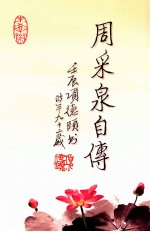 周采泉自傳
壬辰項德頤書
時年九十二歲